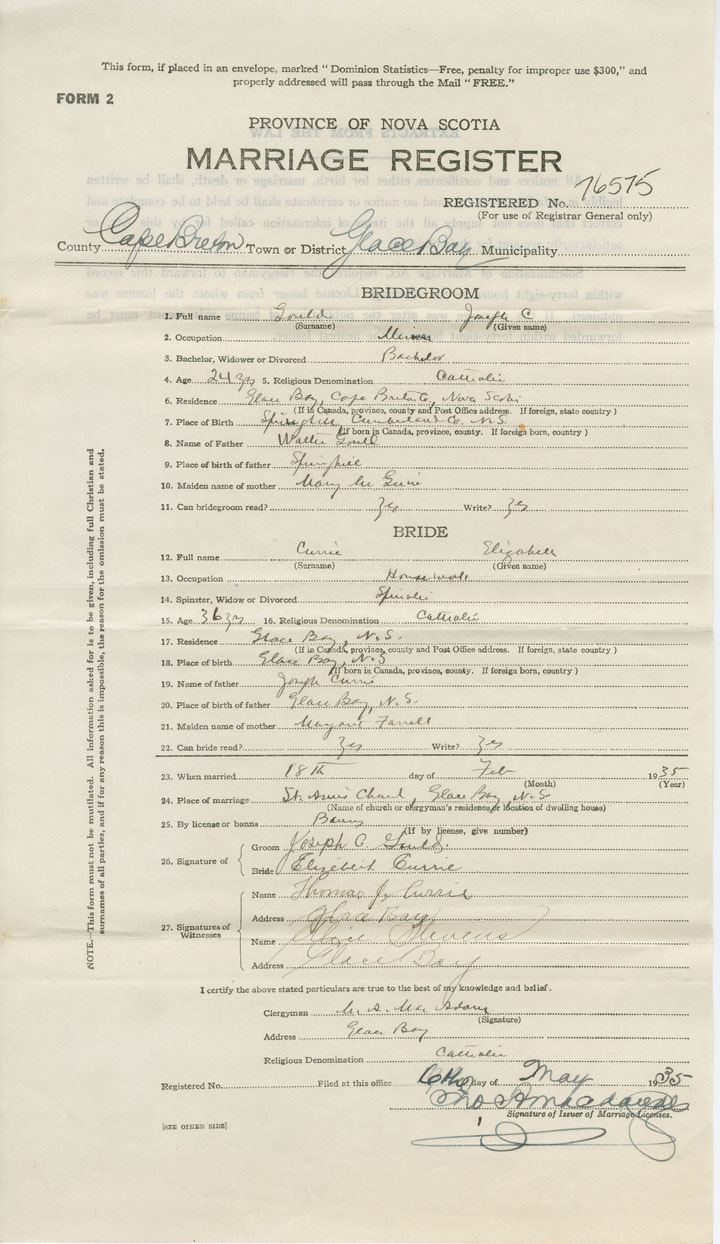 This form, if placed in an envelope, marked " Dominion Statistics—Free, penalty for improper use $300," and
properly addressed will pass through the Mail " FREE."
FORM 2
PROVINCE OF NOVA SCOTIA
MARRIAGE REGISTER
REGISTERED No. 76575
(For use of Registrar General only)
County Cape Breton Town or District Glace Bay Municipality
BRIDEGROOM
1. Full name Gould Joseph C
(Surname) (Given name)
2. Occupation Miner
3. Bachelor, Widower or Divorced Bachelor
4. Age 24 yrs 5. Religious Denomination Catholic
6. Residence Glace Bay, Cape Breton, Nova Scotia
(If in Canada, province, county and Post Office address. If foreign, state country )
7. Place of Birth Springhill, Cumberland Co. N.S.
(If born in Canada, province, county. If foreign born, country )
8. Name of Father Walter Gould
9. Place of birth of father Springhill
10. Maiden name of mother Mary
11. Can bridegroom read? Yes Write? Yes
BRIDE
12. Full name Currie Elizabeth
(Surname) (Given name)
13. Occupation Housework
14. Spinster, Widow or Divorced Spinster
15. Age 36 yrs 16. Religious Denomination Catholic
17. Residence Glace Bay, N.S.
(If in Canada, province, county and Post Office address. If foreign, state country )
18. Place of birth Glace Bay, N.S
(If born in Canada, province, county. If foreign born, country )
19. Name of father Joseph Currie
20. Place of birth of father Glace Bay, N.S.
21. Maiden name of mother Margaret Farrell
22. Can bride read? Yes Write? Yes
23. When married 18th day of Feb 1935
(Month) (Year)
24. Place of marriage St. Ann's Church, Glace Bay, N.S
(Name of church or clergyman's residence, or location of dwelling house)
25. By license or banns Banns
(If by license, give number)
26. Signature of
Groom Joseph C Gould.
Bride Elizabeth Currie
27. Signatures of Witnesses
Name Thomas J. Currie
Address Glace Bay
Name Stevens
Address Glace Bay
I certify the above stated particulars are true to the best of my knowledge and belief.
Clergyman M. A. MacAdam
(Signature)
Address Glace Bay
Religious Denomination Catholic
Registered No. Filed at this office 6th day of May 1935
Signature of Issuer of Marriage Licenses.
[SEE OTHER SIDE]
NOTE.—This form must not be mutilated. All information asked for is to be given, including full Christian and
surnames of all parties, and if for any reason this is impossible, the reason for the omission must be stated.